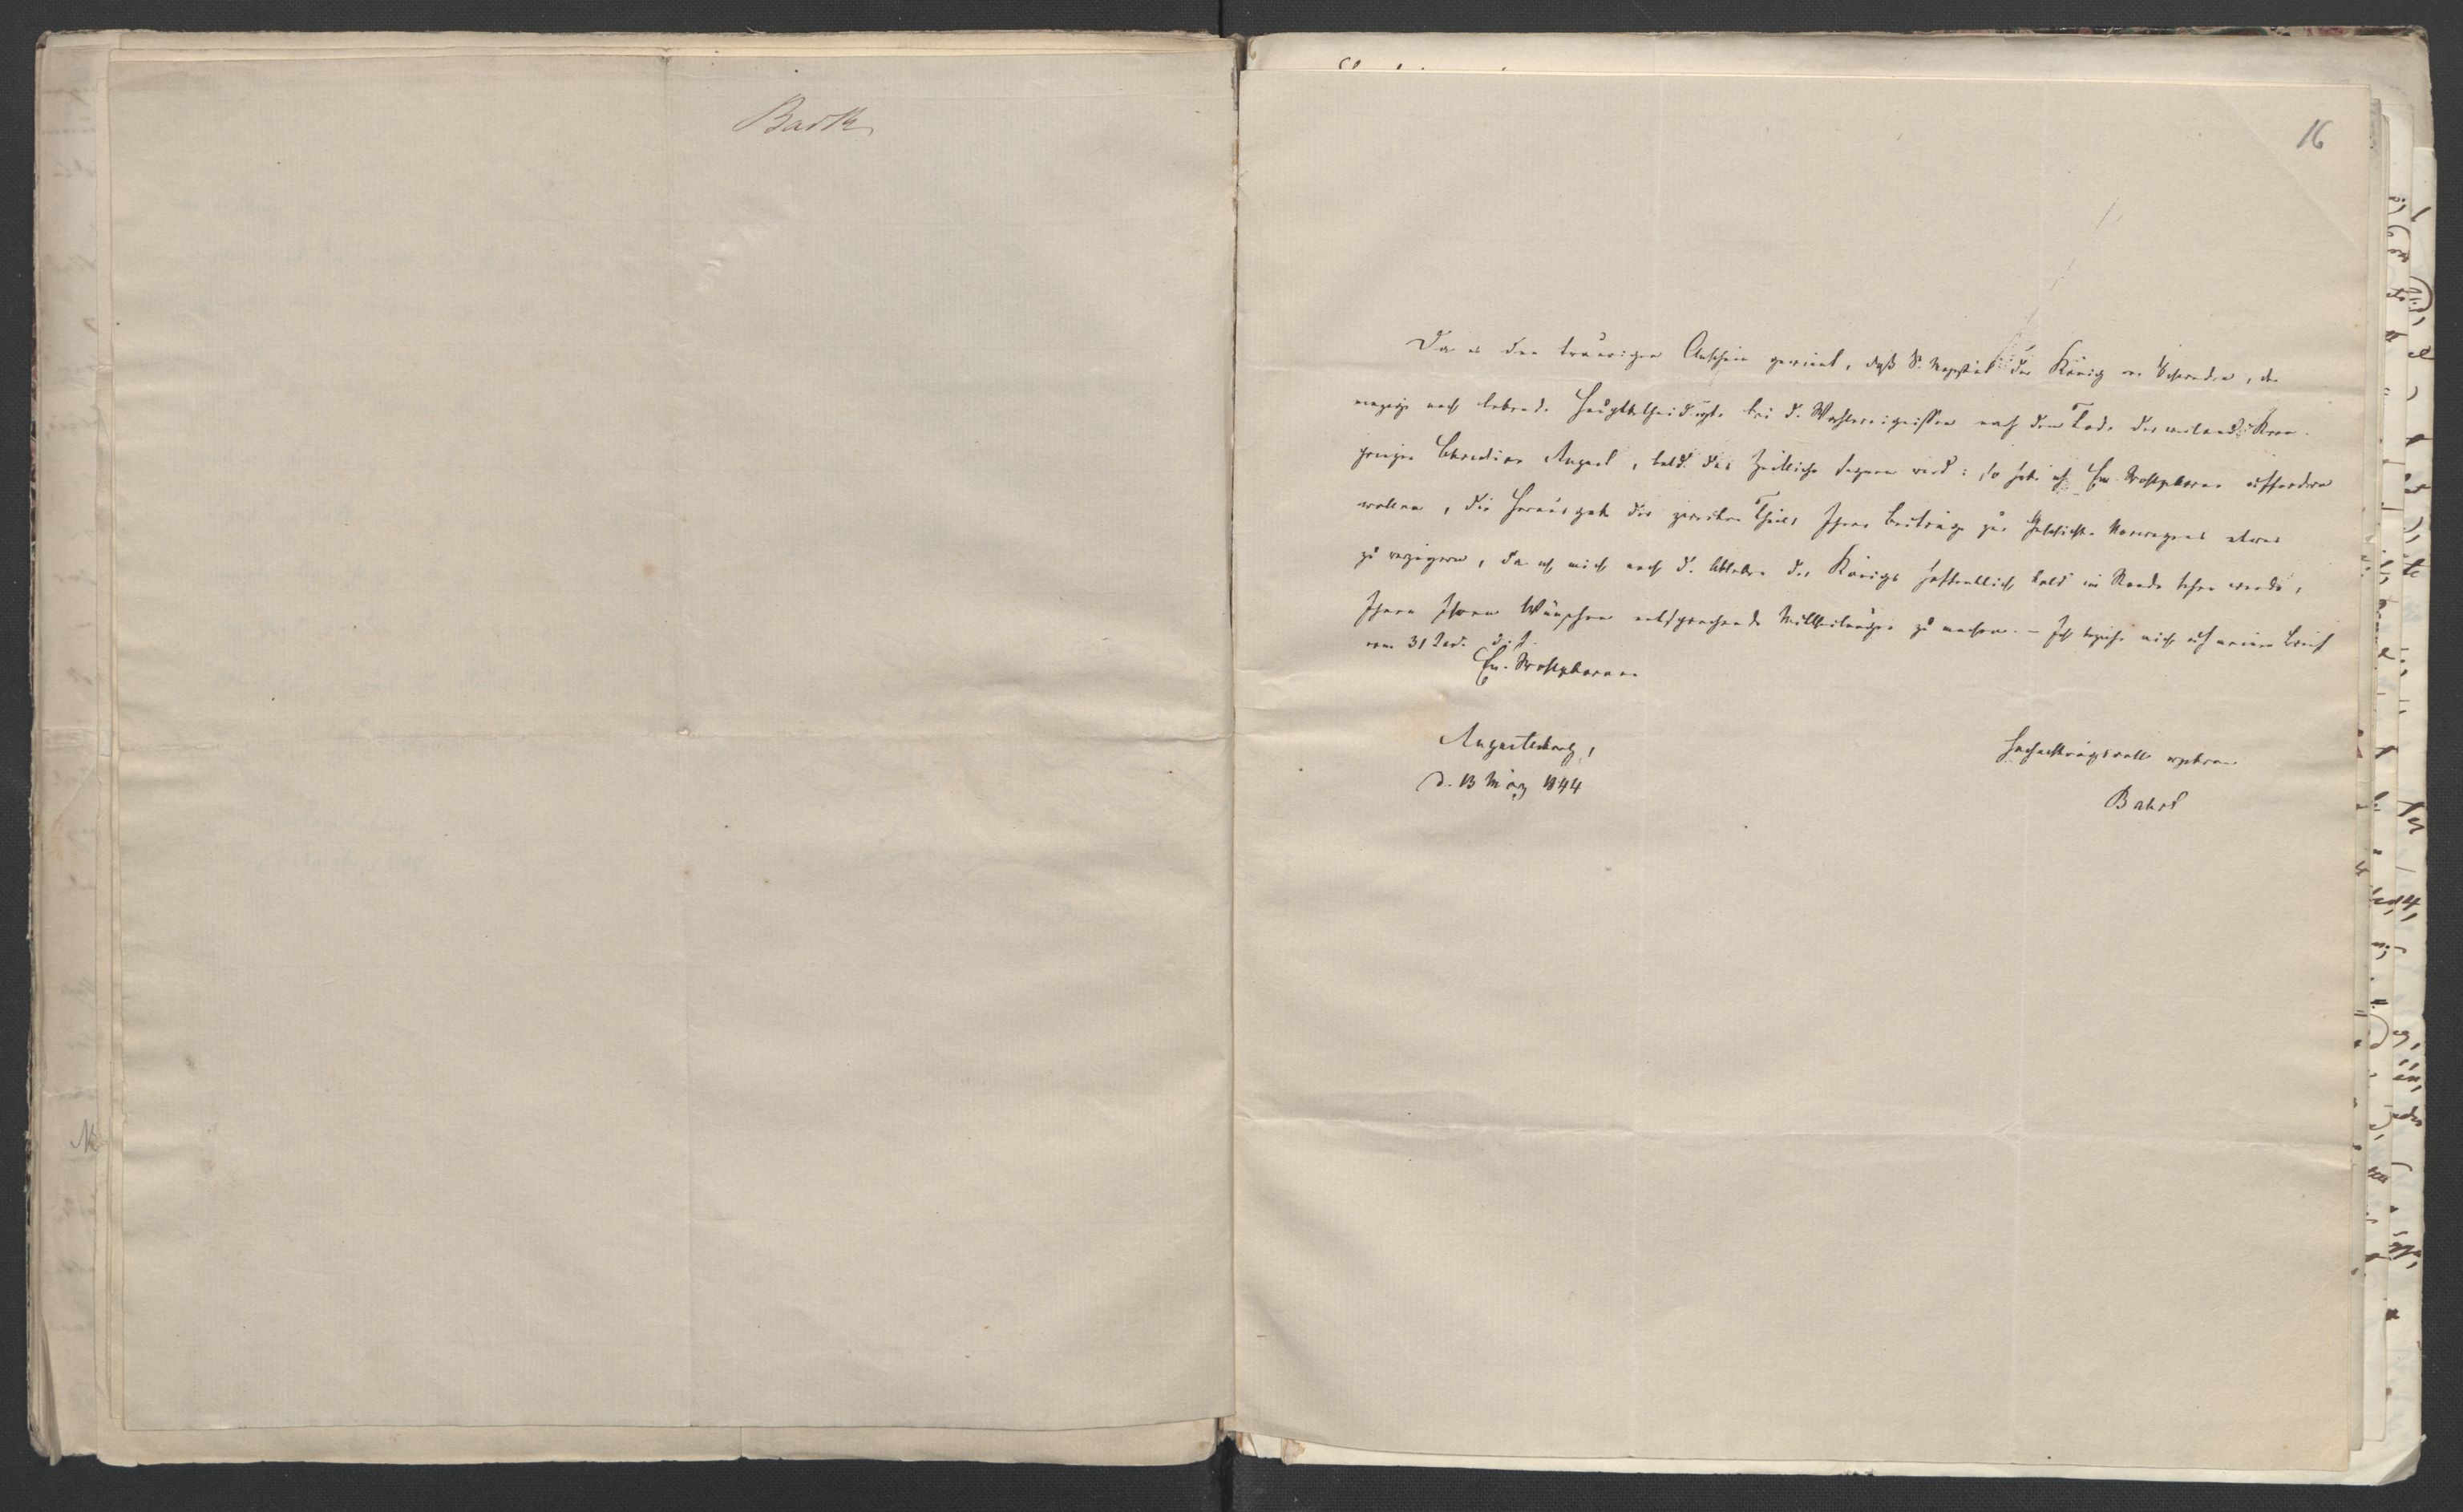 Barth
16
Da es den traurigen Anschein gewinnt, daß S. Majestät der König von Schweden, der
einzige noch lebende Hauptbetheiligte bei d. Wahlereignissen nach dem Tode des weiland Kron-
prinzen Christian August, bald das Zeitliche segnen wird: so habe ich Ew. Wohlgeboren auffordern
wollen, die Herausgabe des zweiten Theils Ihrer Beiträge zur Geschichte Norwegens etwas
zu verzögern, da ich mich nach d. Ableben des Königs hoffentlich bald im Stande sehen werde,
Ihnen Ihren Wünschen entsprechende Mittheilungen zu machen. – Ich beziehe mich auf meinen Brief
vom 31 d. J.
Ew. Wohlgeboren
Augustenburg,
d. 13 März 1844
hochachtungsvoll ergebener